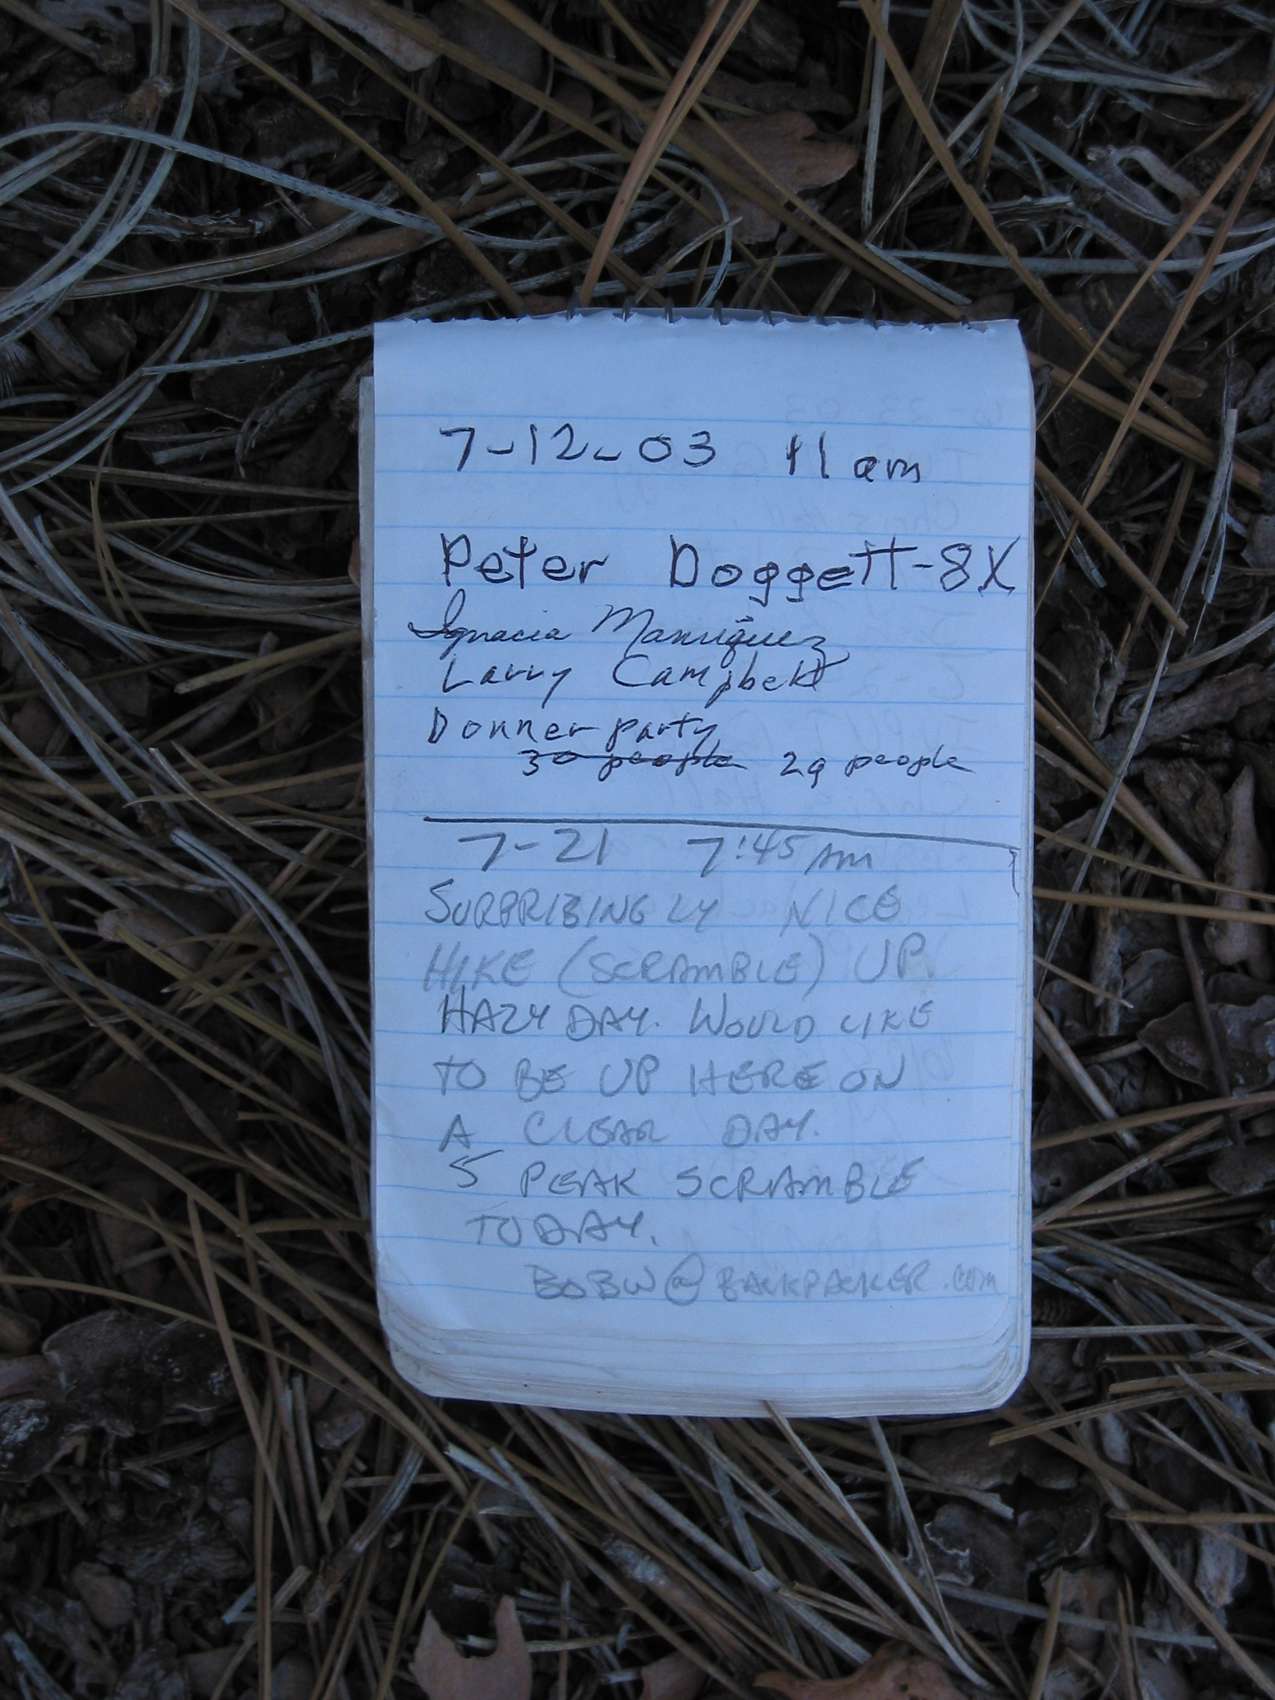 7-12-03 11am
Peter Doggett-8X
Ignacia Manriquez
Larry Campbell
Donner party
30 people 29 people
7-21 7:45 AM
SURPRIZINGLY NICE
HIKE (SCRAMBLE) UP.
HAZY DAY. WOULD LIKE
TO BE UP HERE ON
A CLEAR DAY.
5 PEAK SCRAMBLE
TODAY.
BOBW@BACKPACKER.COM